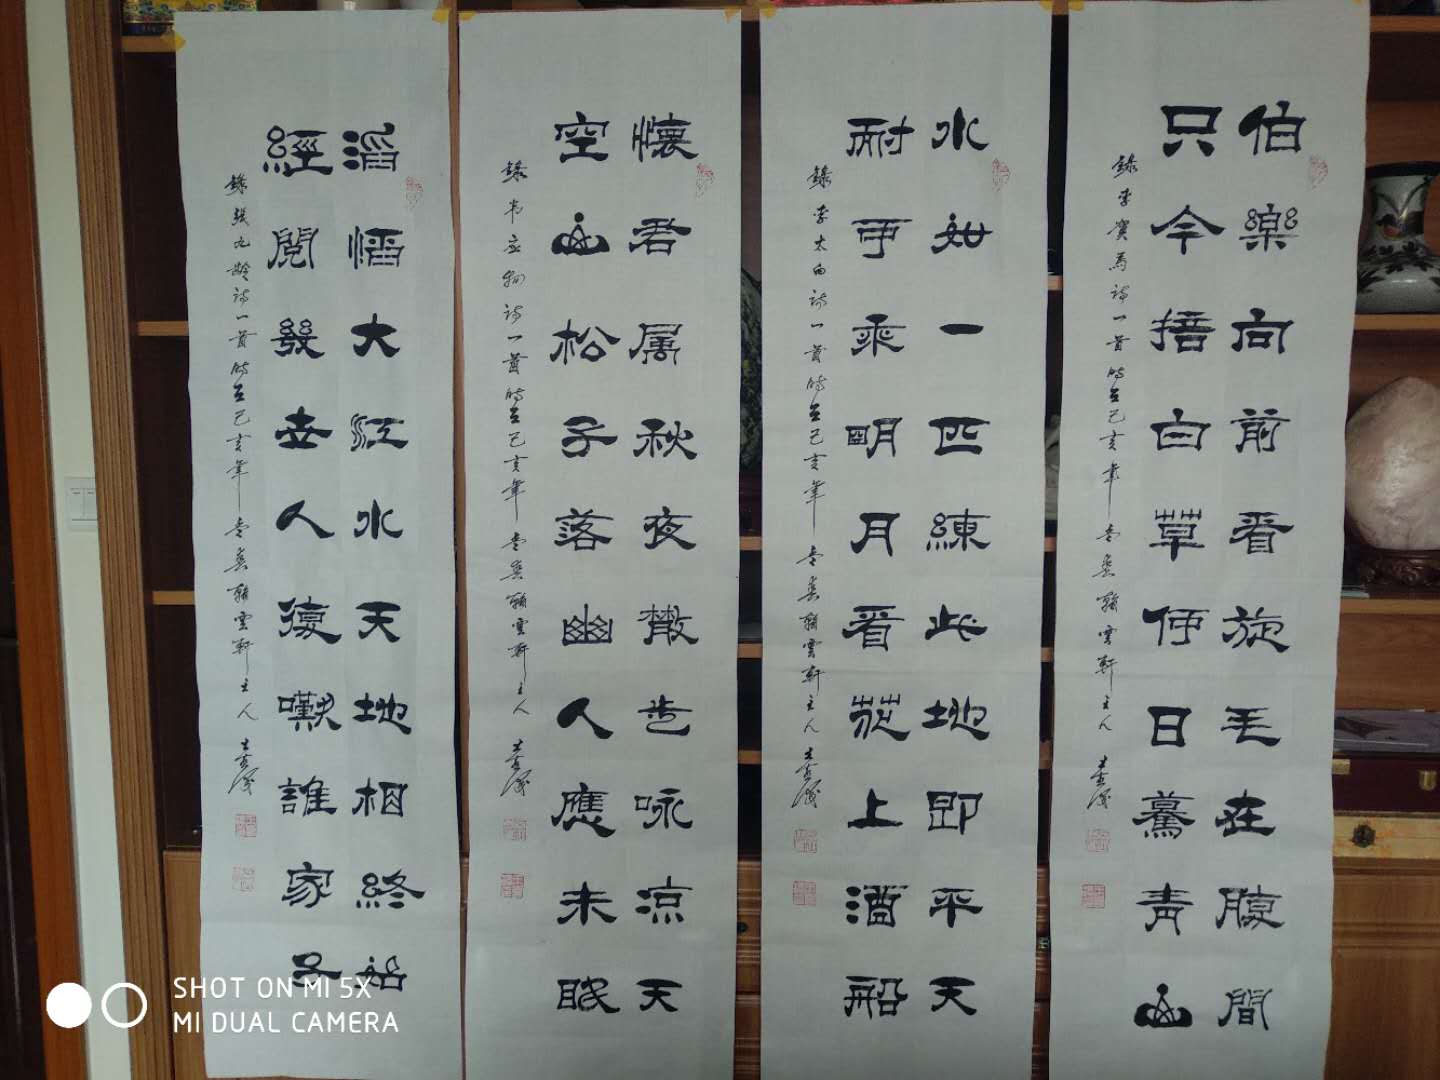 伯樂向前看旋毛在腹間
只今掊白草何日驀青山
錄李賀馬詩一首時在己亥年翰雲軒主人
水如一匹練此地即平天
耐可乘明月看花上酒船
錄李太白詩一首時在己亥年翰雲軒主人
懷君属秋夜散步咏凉天
空山松子落幽人應未眠
錄韦应物诗一首時在己亥年翰雲軒主人
滔滔大江水天地相終始
經閱幾世人復嘆誰家子
錄張九齡诗一首時在己亥年翰雲軒主人
SHOT ON MI 5X
MI DUAL CAMERA